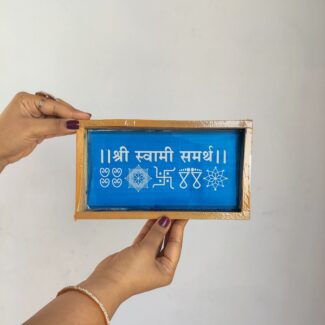 ।।श्री स्वामी समर्थ।।